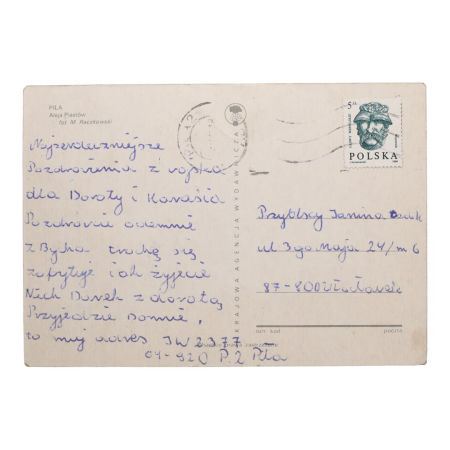 PIŁA
Aleja Piastów
fot. M. Raczkowski
Najserdeczniejsze
Pozdrowienia z wojska
dla Doroty i
Pozdrowcie odemnie
z Bycha trochę się
zapytuje i jak żyjecie
Niech Darek z dorotą
Przyjedzie Domnie,
to mój adres JW 2377
64-920 P.2 Piła
KRAJOWA AGENCJA WYDAWNICZA
5 zł
POLSKA
Przybylscy Janina
ul 3go Maja 24/m 6
87-800 Włocławek
kod
poczta